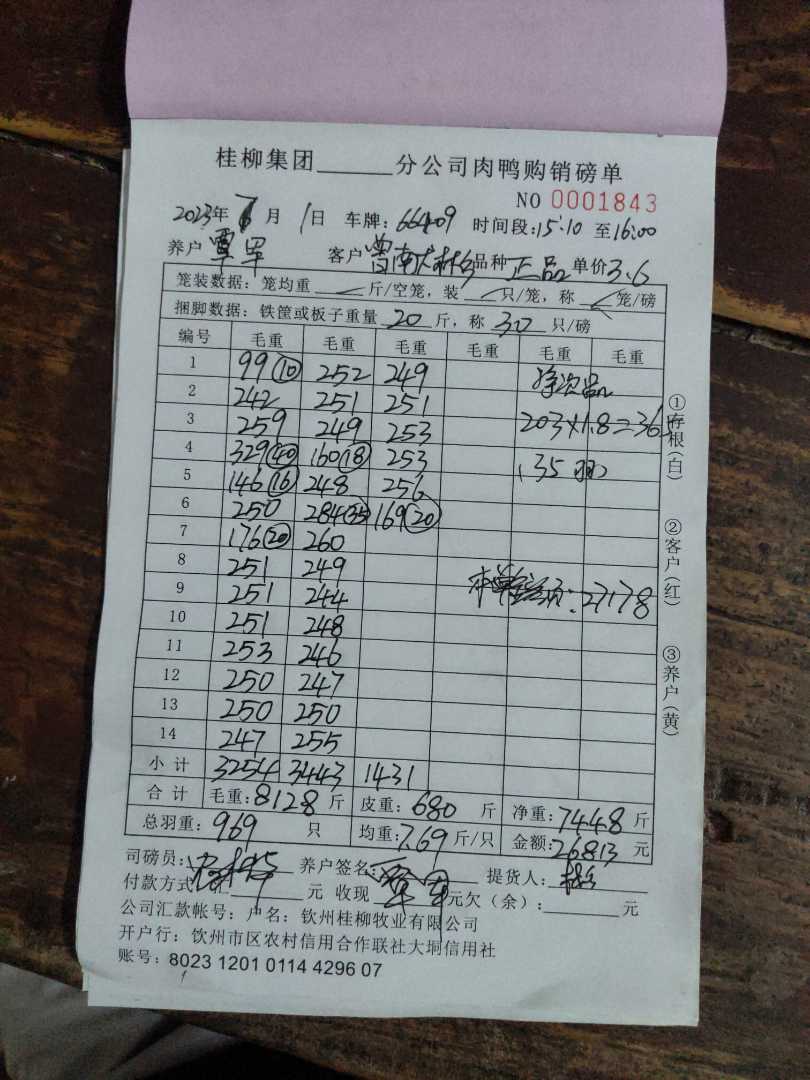 桂柳集团______分公司肉鸭购销磅单
NO 0001843
2023年 月 1日 车牌:66409 时间段:15:10 至16:00
养户 覃 客户 品种 正品 单价3.6
笼装数据:笼均重 斤/空笼,装 只/笼,称 笼/磅
捆脚数据:铁筐或板子重量 20 斤,称 30 只/磅
编号 毛重 毛重 毛重 毛重 毛重 毛重
1 99(10) 252 249 次品
2 242 251 251 203×1.8=365
3 259 249 253
4 329(40) 160(18) 253 35羽
5 146(16) 248 256
6 250 284(35) 169(20)
7 176(20) 260
8 251 249
9 251 244 27178
10 251 248
11 253 246
12 250 247
13 250 250
14 247 255
小计 3254 3443 1431
合计 毛重:8128斤 皮重:680斤 净重:7448斤
总羽重:969 只 均重:7.69斤/只 金额:26813元
司磅员: 养户签名: 提货人:
付款方式 元 收现 元欠(余):______元
公司汇款帐号:户名:钦州桂柳牧业有限公司
开户行:钦州市区农村信用合作联社大垌信用社
账号:8023 1201 0114 4296 07
①存根(白)
②客户(红)
③养户(黄)